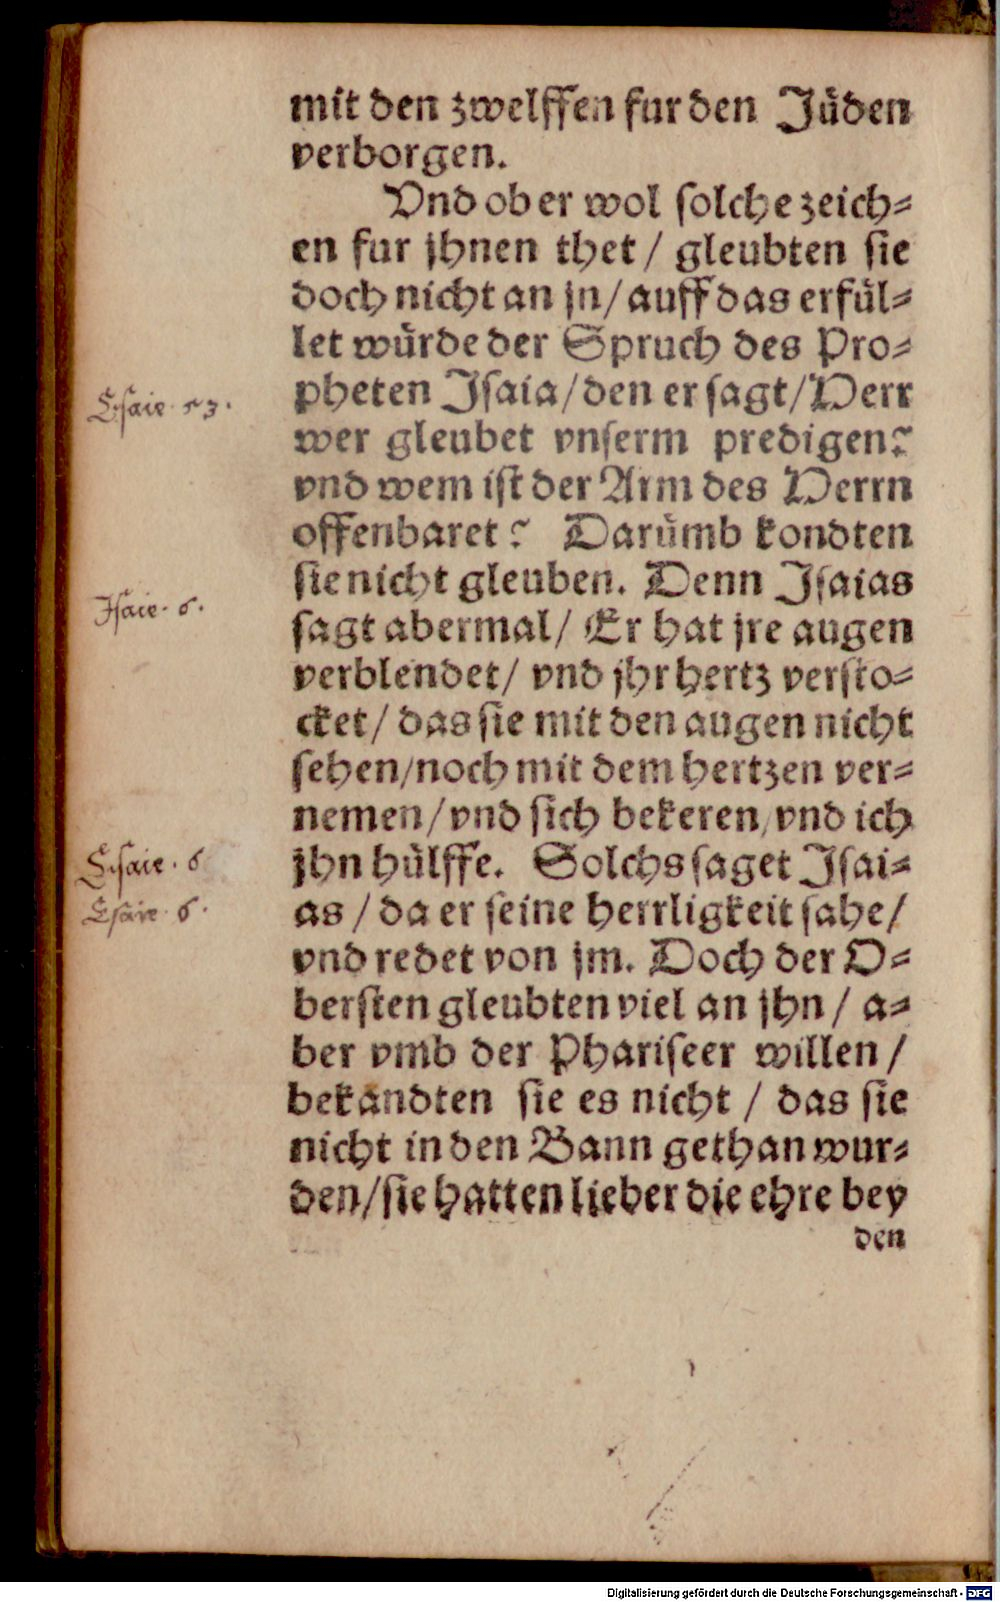 mit den zwelffen fur den Jüden
verborgen.
Vnd ob er wol solche zeich-
en fur jhnen thet / gleubten sie
doch nicht an jn / auff das erfül-
let würde der Spruch des Pro-
pheten Jsaia / den er sagt / Herr
wer gleubet vnserm predigen?
vnd wem ist der Arm des Herrn
offenbaret? Darümb kondten
sie nicht gleuben. Denn Jsaias
sagt abermal / Er hat jre augen
verblendet / vnd jhr hertz versto-
cket / das sie mit den augen nicht
sehen / noch mit dem hertzen ver-
nemen / vnd sich bekeren / vnd ich
jhn hülffe. Solchs saget Jsai-
as / da er seine herrligkeit sahe /
vnd redet von jm. Doch der O-
bersten gleubten viel an jhn / a-
ber vmb der Phariseer willen /
bekandten sie es nicht / das sie
nicht in den Bann gethan wur-
den / sie hatten lieber die ehre bey
den
Esaie. 53.
Jsaie. 6.
Esaie. 6
Esaie. 6.
Digitalisierung gefördert durch die Deutsche Forschungsgemeinschaft - DFG